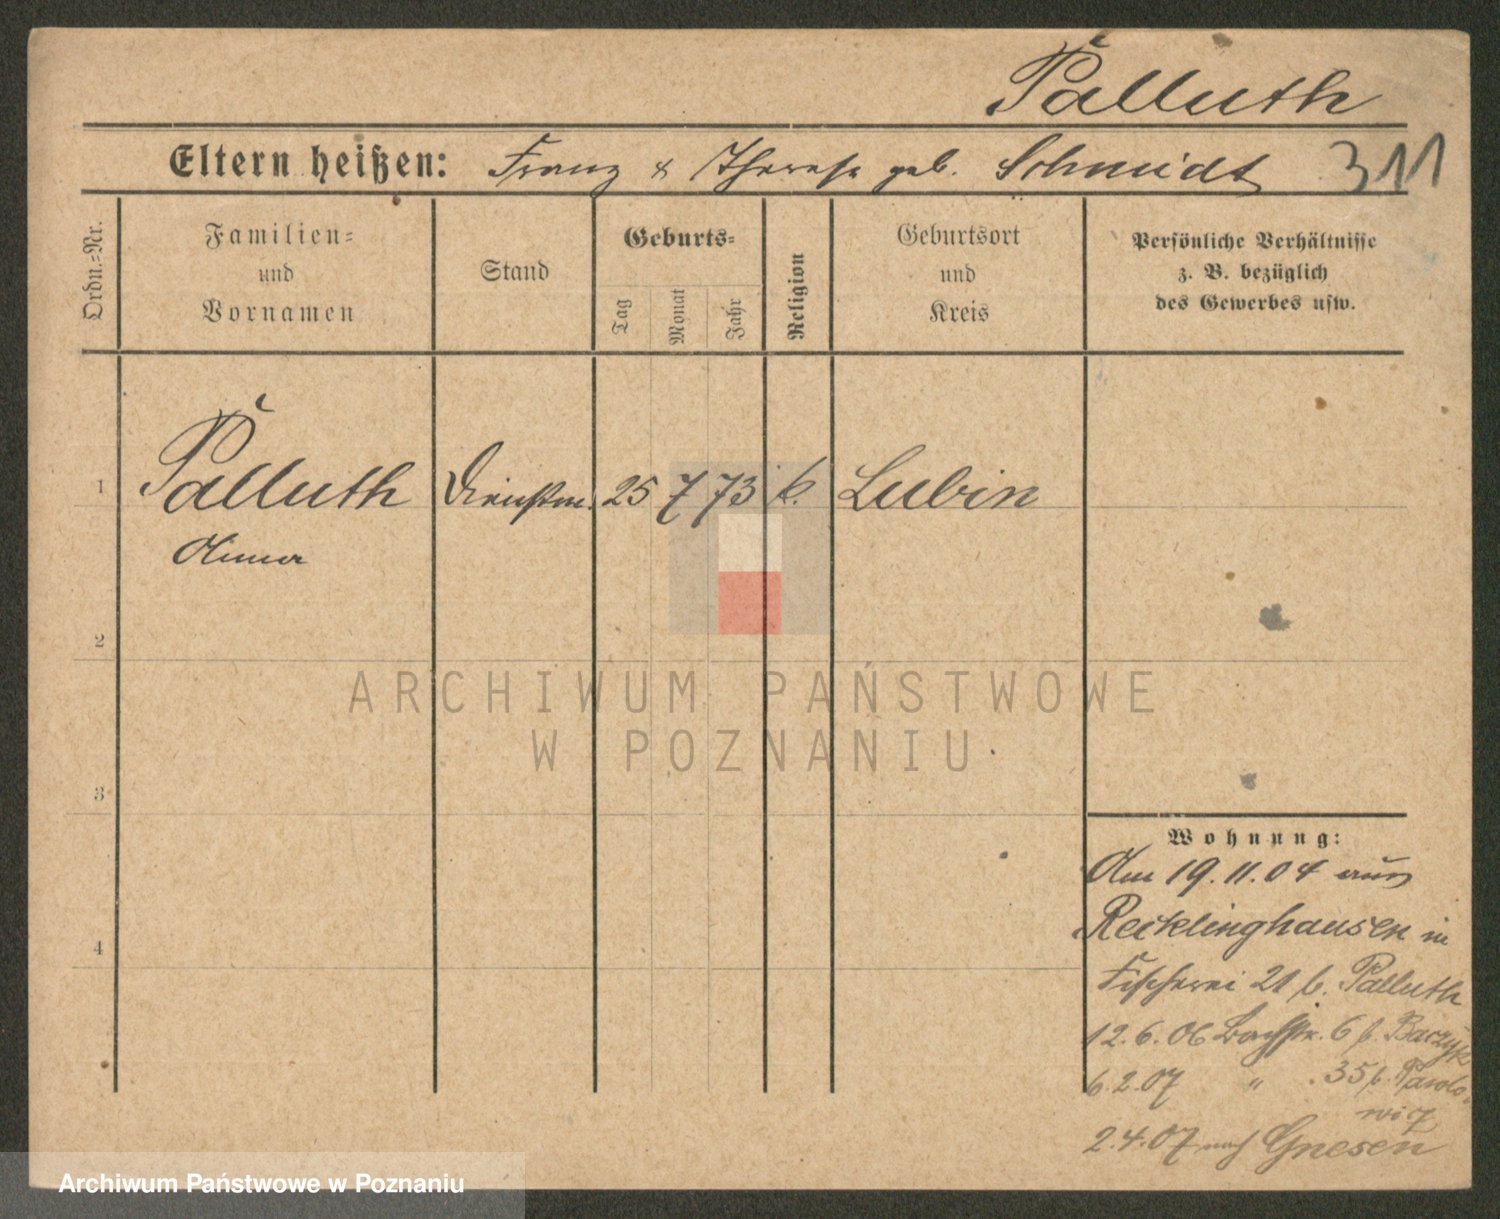 Palluth
Eltern heißen: Franz & Therese geb. Schmidt 311
Ordn.=Nr.
Familien=
und
Vornamen
Stand
Geburts=
Tag
Monat
Jahr
Religion
Geburtsort
und
Kreis
Persönliche Verhältnisse
z. B. bezüglich
des Gewerbes usw.
1 Palluth Dienstm. 25 7 73 k. Lubin
Anna
2
3
4
ARCHIWUM PAŃSTWOWE
W POZNANIU
Wohnung:
Am 19.11.04 aus
Recklinghausen in
Fischerei 21 b. Palluth
12.6.06 Bachstr. 6 b. Baczyk
6.2.07 " 35 b. Pawlo-
wicz
2.4.07 nach Gnesen
Archiwum Państwowe w Poznaniu